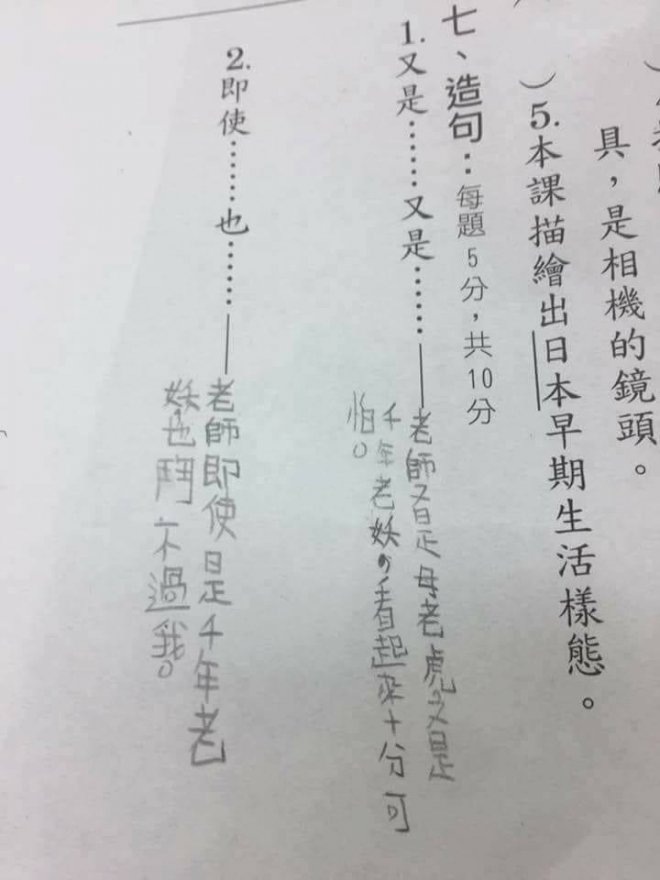 具，是相機的鏡頭。
）5.本課描繪出日本早期生活樣態。
七、造句：每題5分，共10分
1.又是……又是……
老師又是母老虎，又是
千年老妖，看起來十分可
怕。
2.即使……也……
老師即使是千年老
妖也鬥不過我。